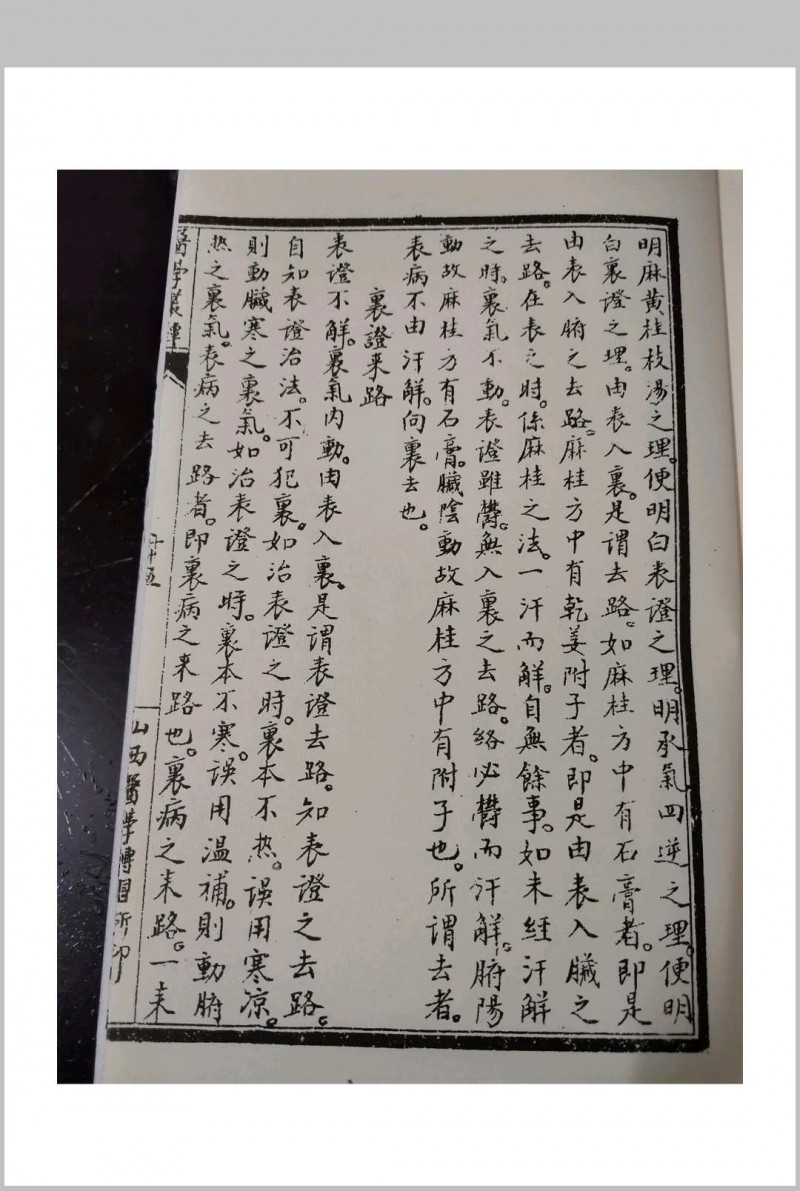 明麻黃桂枝湯之理。便明白表證之理。明承氣四逆之理。便明
白裏證之理。由表入裏。是謂去路。如麻桂方中有石膏者。即是
由表入腑之去路。麻桂方中有乾姜附子者。即是由表入臟之
去路。在表之時。係麻桂之法。一汗而解。自無餘事。如未經汗解
之時。裏氣不動。表證雖鬱。無入裏之去路。絡必鬱而汗解。腑陽
動故麻桂方有石膏。臟陰動故麻桂方中有附子也。所謂去者。
表病不由汗解。向裏去也。
裏證来路
表證不解。裏氣內動。由表入裏。是謂表證去路。知表證之去路。
自知表證治法。不可犯裏。如治表證之時。裏本不热。誤用寒凉。
則動臟寒之裏氣。如治表證之時。裏本不寒。誤用温補。則動腑
热之裏氣。表病之去路者。即裏病之来路也。裏病之来路。一来
醫學
十五
山西醫學傳習所印